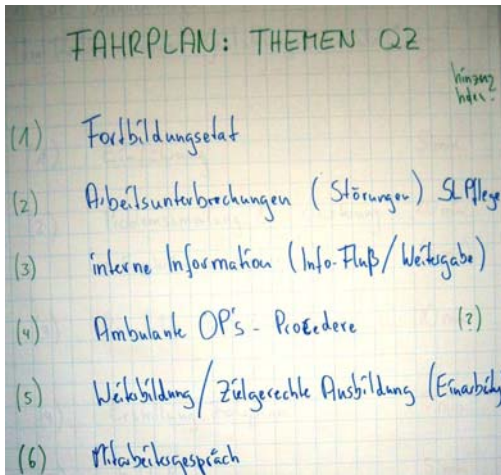 FAHRPLAN: THEMEN QZ
(1) Fortbildungsetat
(2) Arbeitsunterbrechungen (Störungen) SL Pflege
(3) interne Information (Info-Fluß/Weitergabe)
(4) Ambulante OP's - Procedere (?)
(5) Weiterbildung/Zielgerechte Ausbildung (Einarbeitung
(6) Mitarbeitergespräch